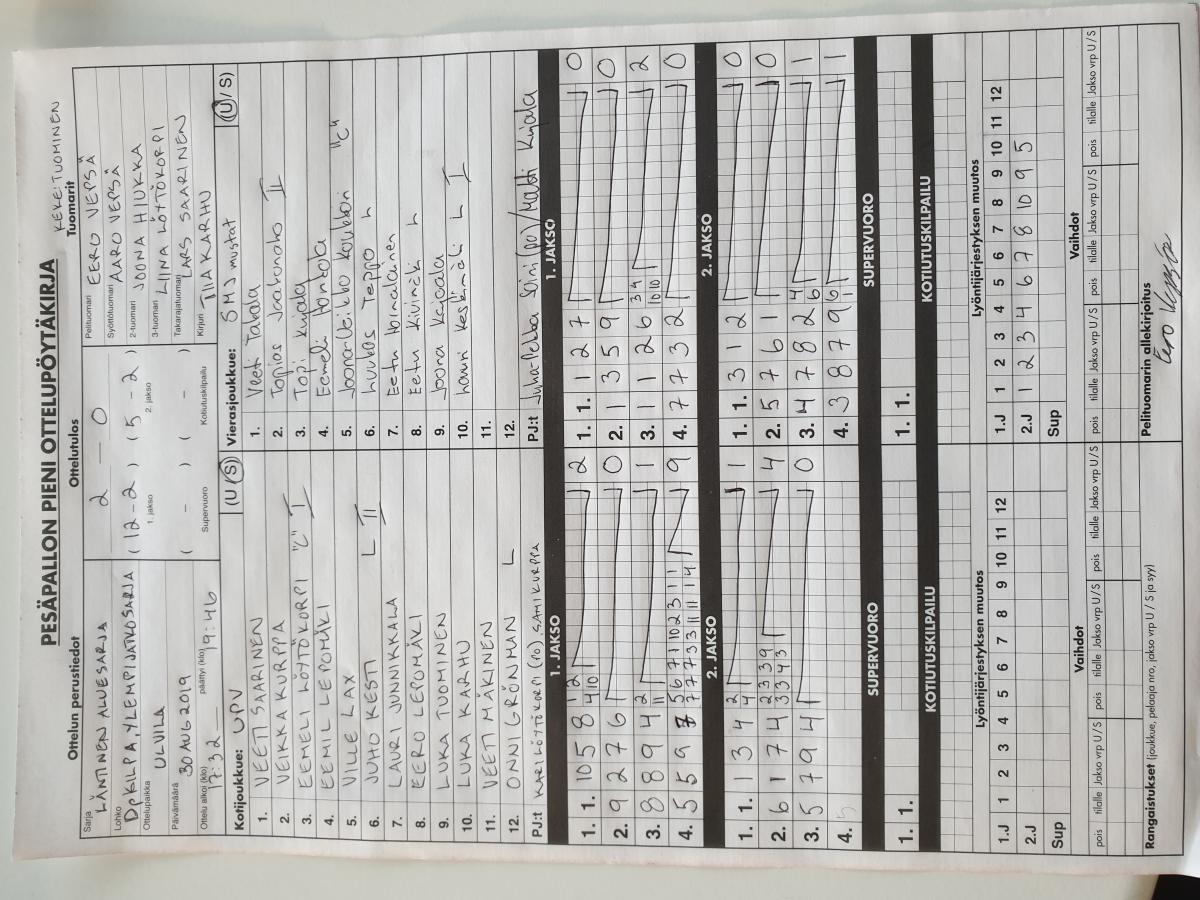 PESÄPALLON PIENI OTTELUPÖYTÄKIRJA
KEKE TUOMINEN
Ottelun perustiedot
Sarja LÄNTINEN ALUESARJA
Lohko DPKILPA, YLEMPI JATKOSARJA
Ottelupaikka ULVILA
Päivämäärä 30 AUG 2019
Ottelu alkoi (klo) 17:32 päättyi (klo) 19:46
Ottelutulos
2 — 0
(12 - 2) (5 - 2)
1. jakso 2. jakso
( - ) ( - )
Supervuoro Kotiutuskilpailu
Tuomarit
Pelituomari EERO VEPSÄ
Syöttötuomari AARO VEPSÄ
2-tuomari JOONA HIUKKA
3-tuomari LIINA LÖYTÖKORPI
Takarajatuomari LARS SAARINEN
Kirjuri TIIA KARHU
Kotijoukkue: UPV (U/S)
1. VEETI SAARINEN
2. VEIKKA KURPPA
3. EEMELI LÖYTÖKORPI "C" I
4. EEMIL LEPOMÄKI
5. VILLE LAX
6. JUHO KESTI L II
7. LAURI JUNNIKKALA
8. EERO LEPOMÄKI
9. LUKA TUOMINEN
10. LUKA KARHU
11. VEETI MÄKINEN
12. ONNI GRÖNMAN L
PJ:t KARI LÖYTÖKORPI (PO), SAMI KURPPA
Vierasjoukkue: SMJ mustat (U/S)
1. Veeti Takala
2. Topias II
3. Topi Kirjala
4. Eemeli
5. Joona "C"
6. Luukas Teppo L
7. Eetu
8. Eetu Kivimäki L
9. Joona
10. Lauri Keskimäki L I
11.
12.
PJ:t Juha-Pekka (PO) / Matti Kirjala
1. JAKSO
1. 1. 10 5 8 4 10 2
2. 9 2 7 6 0
3. 8 8 9 4 1
4. 5 5 9 7 9
2. JAKSO
1. 1. 1 3 4 1
2. 6 1 7 4 4
3. 5 7 9 4 0
4.
SUPERVUORO
1. 1.
KOTIUTUSKILPAILU
1. JAKSO
1. 1. 1 2 7 0
2. 1 3 5 9 0
3. 1 1 2 6 2
4. 7 7 3 2 0
2. JAKSO
1. 1. 3 1 2 0
2. 5 7 6 1 0
3. 4 7 8 2 1
4. 3 8 7 9 1
SUPERVUORO
1. 1.
KOTIUTUSKILPAILU
Lyöntijärjestyksen muutos
1.J 1 2 3 4 5 6 7 8 9 10 11 12
2.J
Sup
Vaihdot
pois tilalle Jakso vrp U/S pois tilalle Jakso vrp U/S pois tilalle Jakso vrp U/S
Lyöntijärjestyksen muutos
1.J 1 2 3 4 5 6 7 8 9 10 11 12
2.J 1 2 3 4 6 7 8 10 9 5
Sup
Vaihdot
pois tilalle Jakso vrp U/S pois tilalle Jakso vrp U/S pois tilalle Jakso vrp U/S
Rangaistukset (joukkue, pelaaja nro, jakso vrp U / S ja syy)
Pelituomarin allekirjoitus
Eero Vepsä